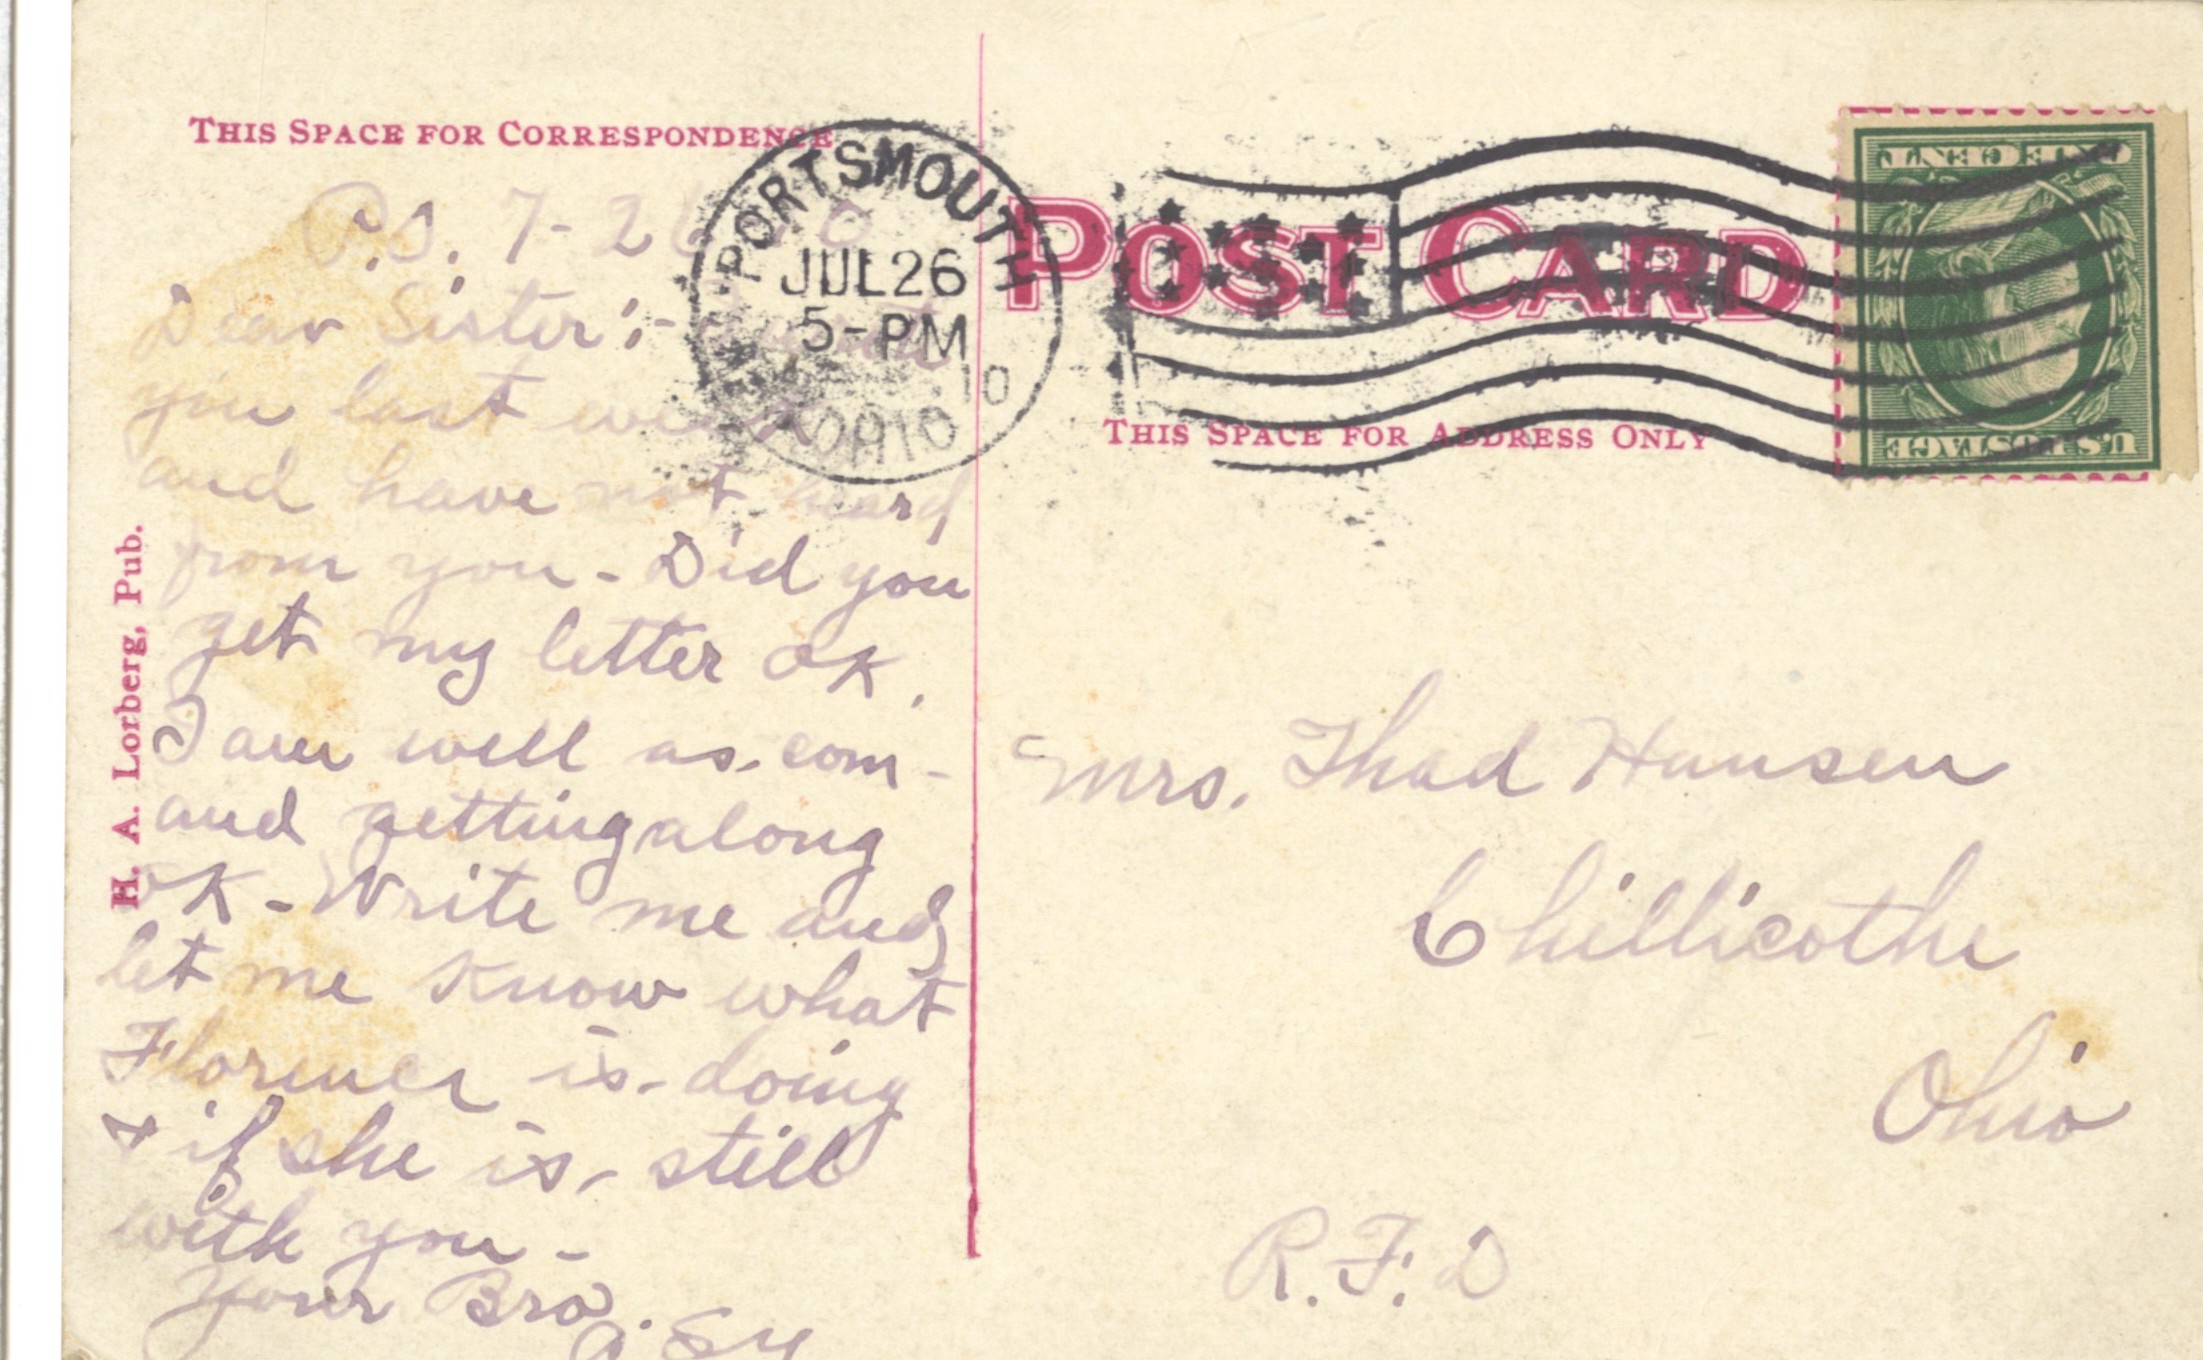 THIS SPACE FOR CORRESPONDENCE
P.S. 7-26
Dear Sister:-
you last week
and have not heard
from you - Did you
get my letter OK.
I am well as com-
and getting along
OK - Write me and
let me know what
Florence is doing
+ if she is still
with you -
Your Bro.
H. A. Lorberg, Pub.
PORTSMOUTH
JUL 26
5-PM
10
OHIO
POST CARD
THIS SPACE FOR ADDRESS ONLY
ONE CENT
U.S. POSTAGE
Mrs. Thad Hansen
Chillicothe
Ohio
R.F.D